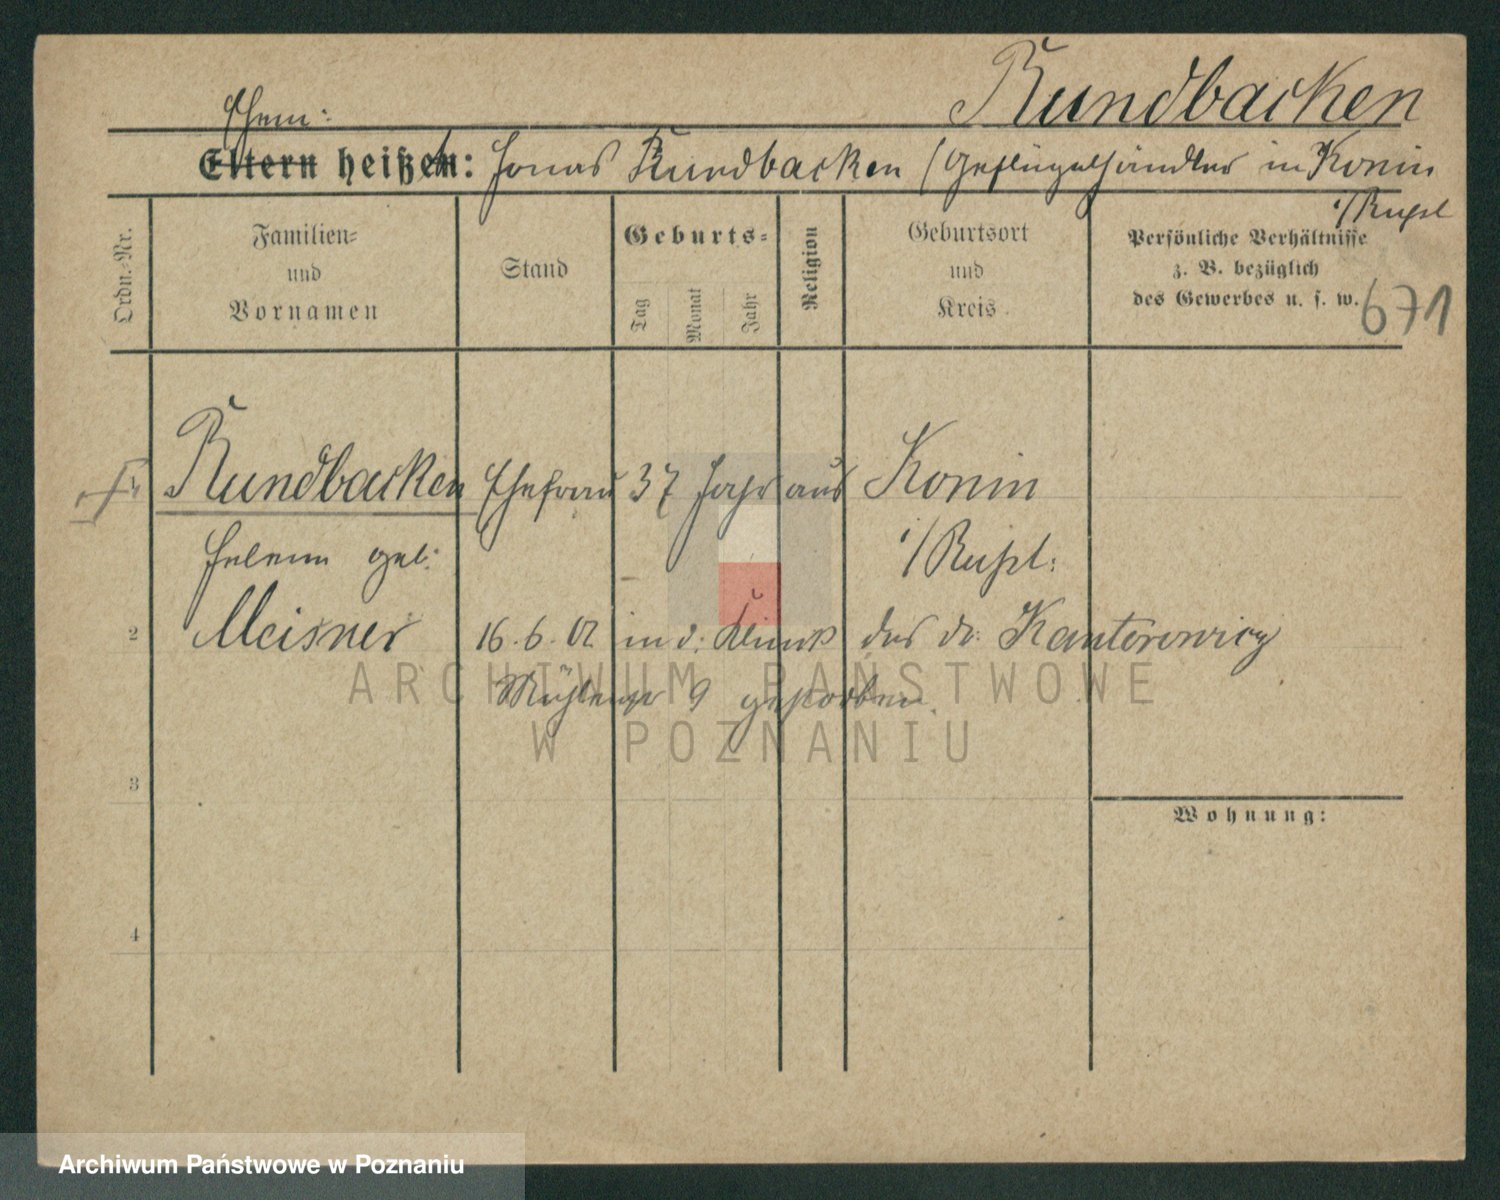 Rundbacken
Ehem:
Eltern heißen: Jonas Rundbacken / Geflügelhändler in Konin
i/Rußl
Ordn.-Nr.
Familien-
und
Vornamen
Stand
Geburts-
Tag
Monat
Jahr
Religion
Geburtsort
und
Kreis.
Persönliche Verhältnisse
z. B. bezüglich
des Gewerbes u. s. w.
671
1 Rundbacken Ehefrau 37 Jahr aus Konin
geb: i/Rußl:
2 Meisner 16.6.02 in d: Klinik des dr: Kantorowicz
9 gestorben.
ARCHIWUM PAŃSTWOWE
W POZNANIU
3
Wohnung:
4
Archiwum Państwowe w Poznaniu